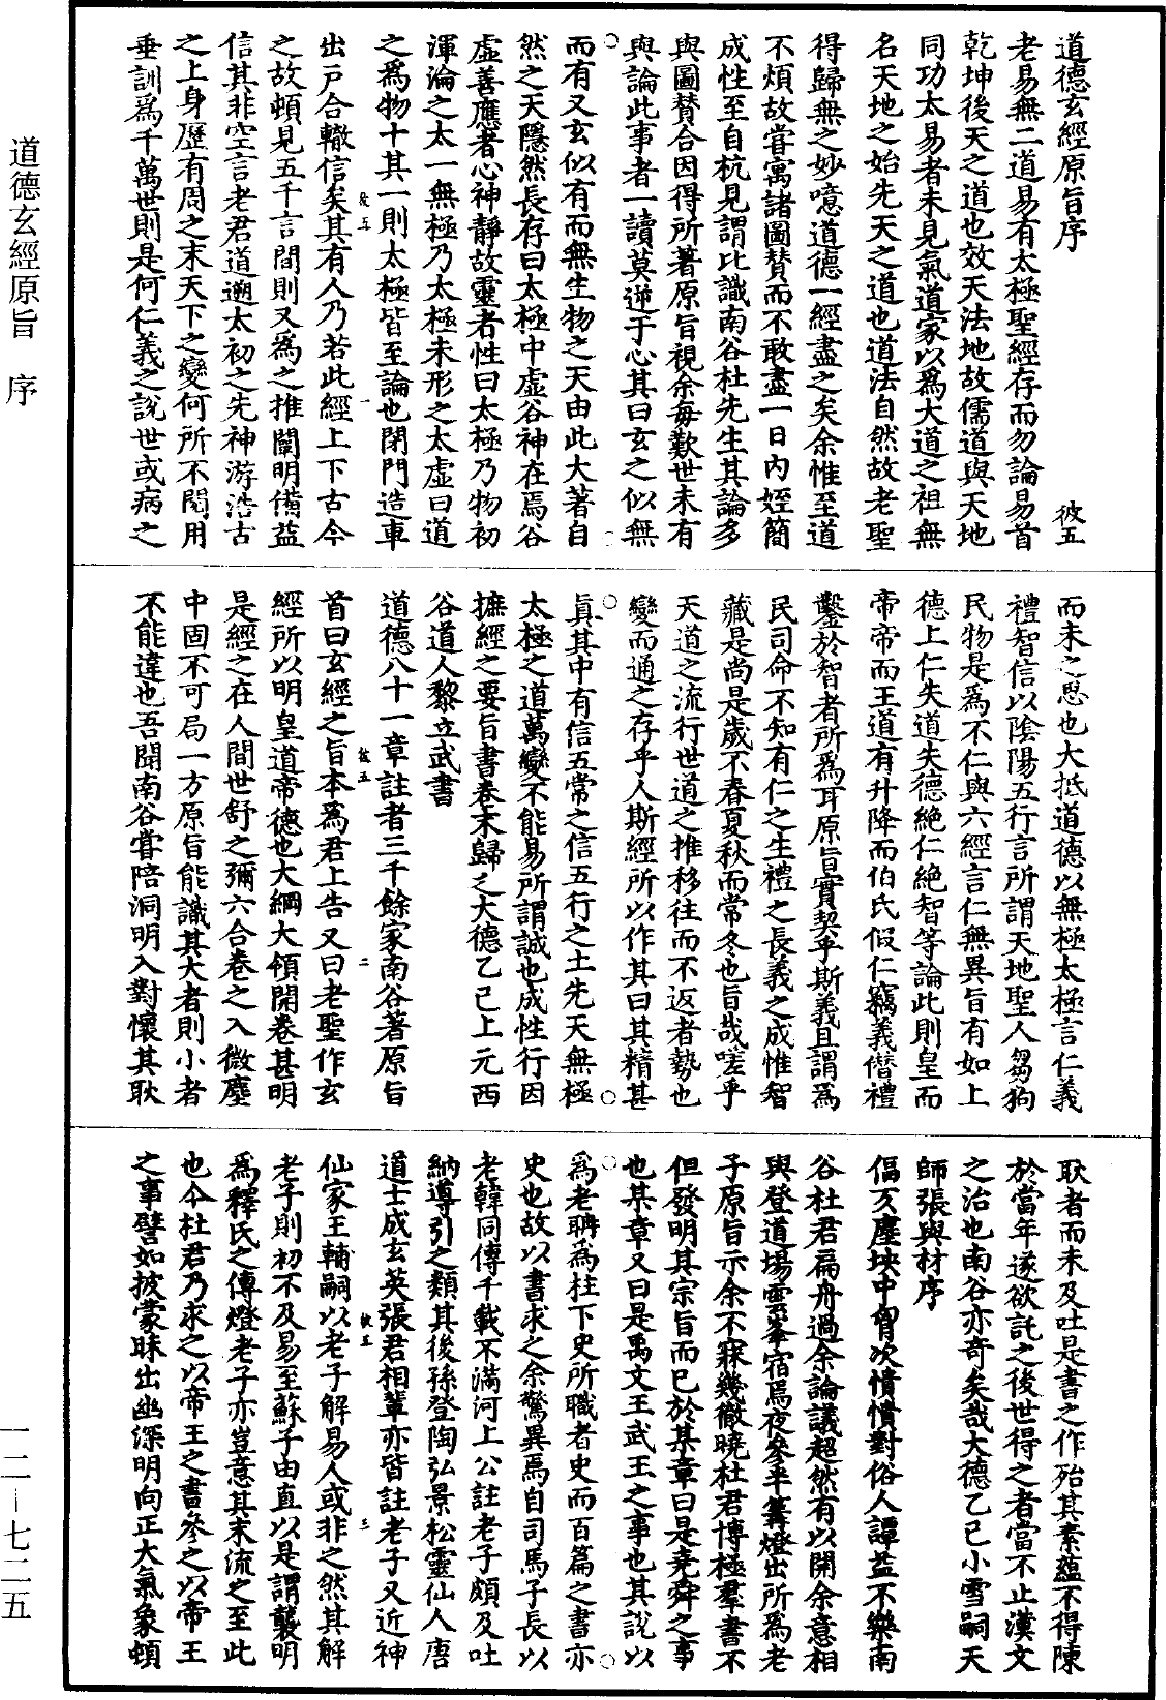 道德玄經原旨序　彼五
老易無二道易有太極聖經存而勿論易首
乾坤後天之道也效天法地故儒道與天地
同功太易者未見氣道家以爲大道之祖無
名天地之始先天之道也道法自然故老聖
得歸無之妙噫道德一經盡之矣余惟至道
不煩故嘗寓諸圖贊而不敢盡一日內姪簡
成性至自杭見謂比識南谷杜先生其論多
與圖贊合因得所著原旨視余每歎世未有
與論此事者一讀莫逆于心其曰玄之似無
而有又玄似有而無生物之天由此大著自
然之天隱然長存曰太極中虛谷神在焉谷
虛善應者心神靜故靈者性曰太極乃物初
渾淪之太一無極乃太極未形之太虛曰道
之爲物十其一則太極皆至論也閉門造車
出戶合轍信矣其有人乃若此經上下古今
之故頓見五千言間則又爲之推闡明備益
信其非空言老君道遡太初之先神游浩古
之上身歷有周之末天下之變何所不閱用
垂訓爲千萬世則是何仁義之說世或病之
而未之思也大抵道德以無極太極言仁義
禮智信以陰陽五行言所謂天地聖人芻狗
民物是爲不仁與六經言仁無異旨有如上
德上仁失道失德絶仁絶智等論此則皇而
帝帝而王道有升降而伯氏假仁竊義僭禮
鑿於智者所爲耳原旨實契乎斯義且謂爲
民司命不知有仁之生禮之長義之成惟智
藏是尚是歲不春夏秋而常冬也旨哉嗟乎
天道之流行世道之推移往而不返者勢也
變而通之存乎人斯經所以作其曰其精甚
眞其中有信五常之信五行之土先天無極
太極之道萬變不能易所謂誠也成性行因
摭經之要旨書卷末歸之大德乙巳上元西
谷道人黎立武書
道德八十一章註者三千餘家南谷著原旨
首曰玄經之旨本爲君上告又曰老聖作玄
經所以明皇道帝德也大綱大領開卷甚明
是經之在人間世舒之彌六合卷之入微塵
中固不可局一方原旨能識其大者則小者
不能違也吾聞南谷嘗陪洞明入對懷其耿
耿者而未及吐是書之作殆其素蘊不得陳
於當年遂欲託之後世得之者當不止漢文
之治也南谷亦奇矣哉大德乙巳小雪嗣天
師張與材序
偪仄塵坱中胷次憒憒對俗人譚益不樂南
谷杜君扁舟過余論議超然有以開余意相
與登道場雲峯宿焉夜參半篝燈出所爲老
子原旨示余不寐幾徹曉杜君博極羣書不
但發明其宗旨而已於某章曰是堯舜之事
也某章又曰是禹文王武王之事也其說以
爲老聃爲柱下史所職者史而百篇之書亦
史也故以書求之余驚異焉自司馬子長以
老韓同傳千載不滿河上公註老子頗及吐
納導引之類其後孫登陶弘景松靈仙人唐
道士成玄英張君相輩亦皆註老子又近神
仙家王輔嗣以老子解易人或非之然其解
老子則初不及易至蘇子由直以是謂襲明
爲釋氏之傳燈老子亦豈意其末流之至此
也今杜君乃求之以帝王之書參之以帝王
之事譬如披蒙昧出幽深明向正大氣象頓
道德玄經原旨　序
一二—七二五